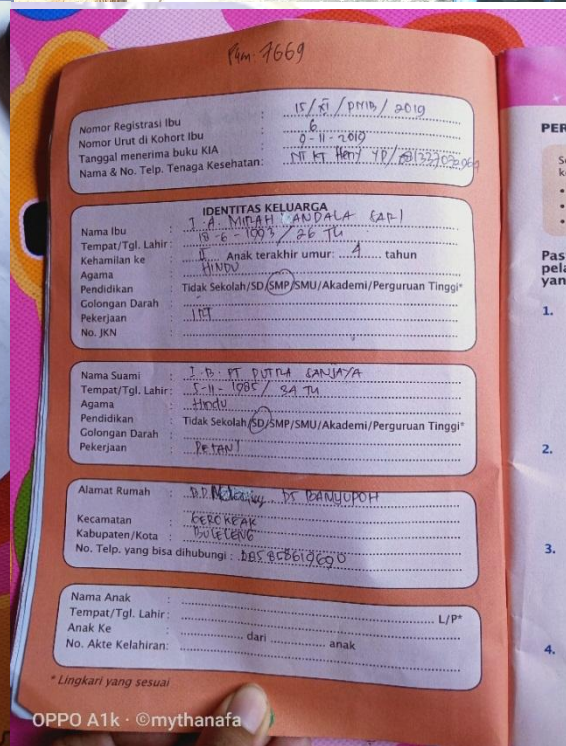 7669
Nomor Registrasi Ibu : 15/XI/PMB/2019
Nomor Urut di Kohort Ibu : 6
Tanggal menerima buku KIA : 0-11-2019
Nama & No. Telp. Tenaga Kesehatan:
IDENTITAS KELUARGA
Nama Ibu : I. A. MIRAH CANDALA SARI
Tempat/Tgl. Lahir : 18-6-1993 / 26 TH
Kehamilan ke : II Anak terakhir umur: 4 tahun
Agama : HINDU
Pendidikan : Tidak Sekolah/SD/SMP/SMU/Akademi/Perguruan Tinggi*
Golongan Darah :
Pekerjaan : IRT
No. JKN :
Nama Suami : I.B. PT PUTRA SANJAYA
Tempat/Tgl. Lahir: 5-11-1985 / 34 TH
Agama : Hindu
Pendidikan : Tidak Sekolah/SD/SMP/SMU/Akademi/Perguruan Tinggi*
Golongan Darah :
Pekerjaan : PETANI
Alamat Rumah : BD DS BANYUPOH
Kecamatan : GEROKGAK
Kabupaten/Kota : BULELENG
No. Telp. yang bisa dihubungi :
Nama Anak :
Tempat/Tgl. Lahir : L/P*
Anak Ke : dari anak
No. Akte Kelahiran:
* Lingkari yang sesuai
PER
Pas
pela
yan
1.
2.
3.
4.
OPPO A1k · ©mythanafa